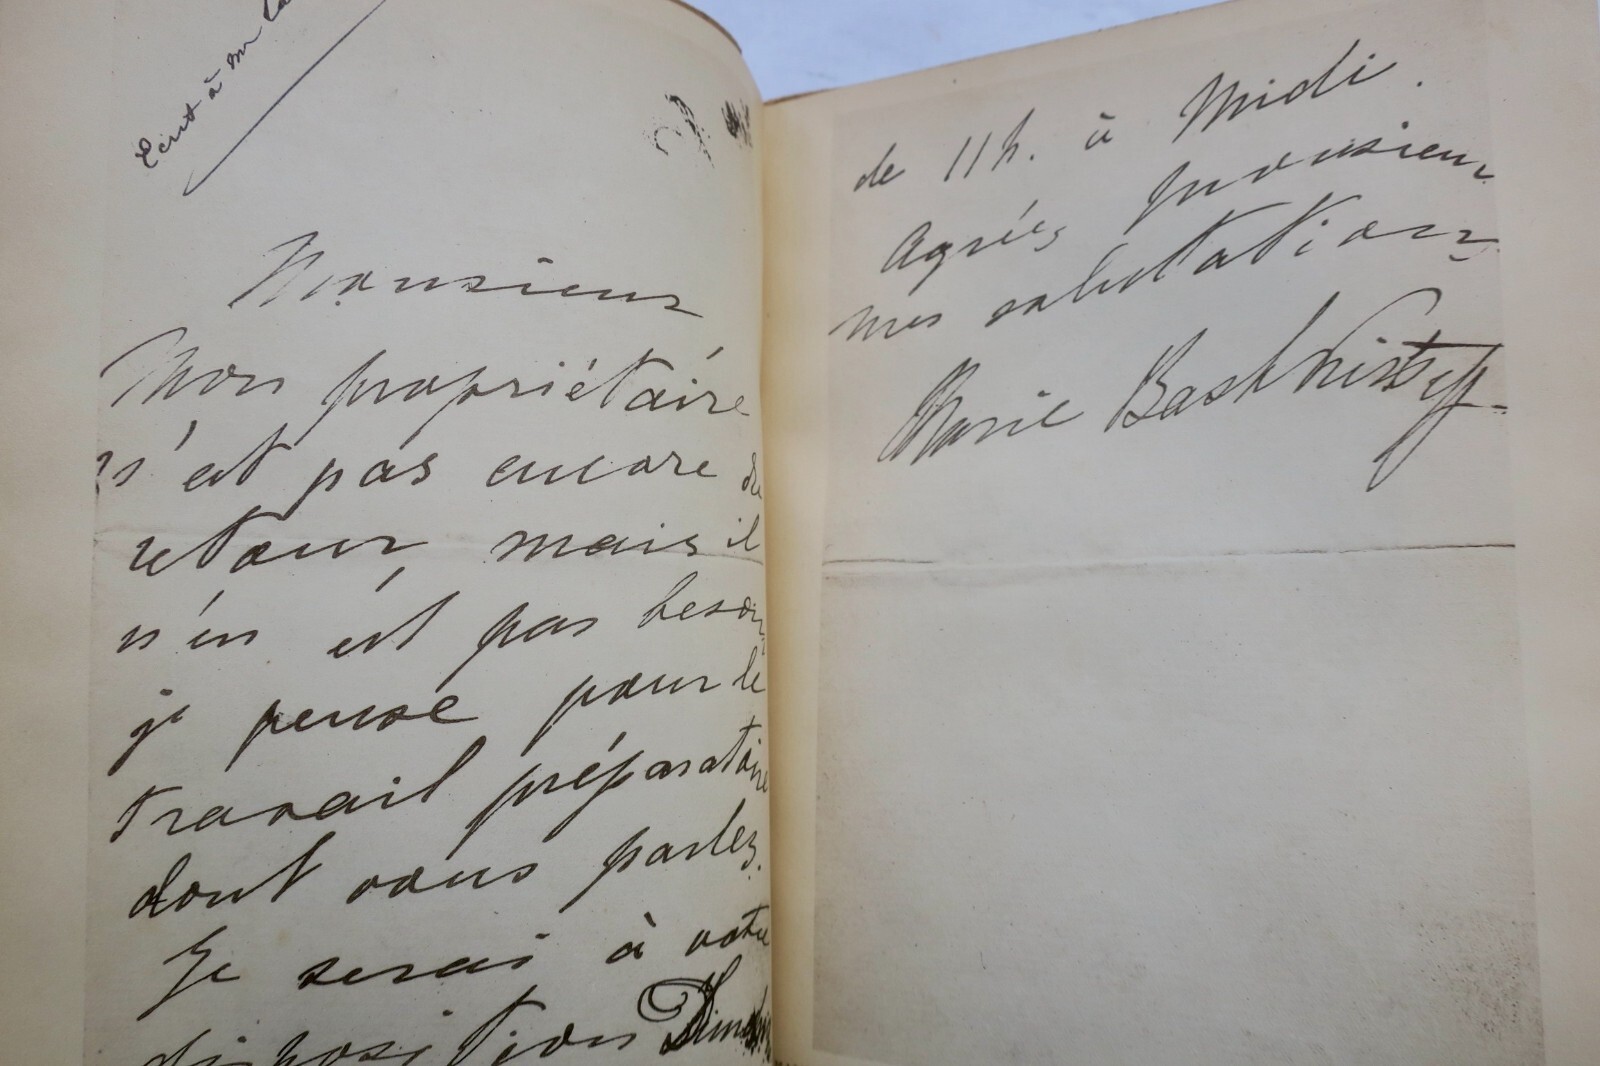 Ecrit à Mr
Monsieur
Mon propriétaire
n'est pas encore de
retour, mais il
n'en est pas besoin
je pense pour le
travail préparatoire
dont vous parlez.
Je serai à votre
disposition Dimanche
de 11h. à Midi.
Agréez monsieur
mes salutations
Marie Bashkirtseff